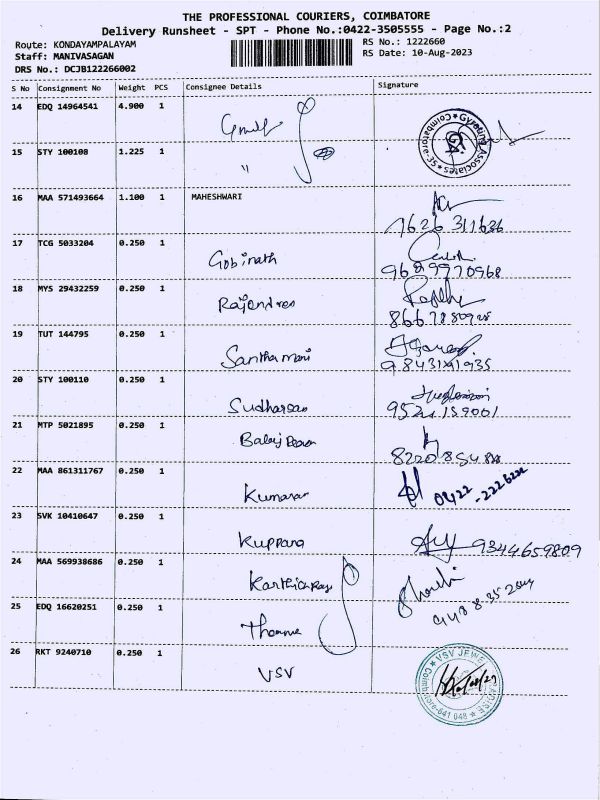 THE PROFESSIONAL COURIERS, COIMBATORE
Delivery Runsheet - SPT - Phone No.:0422-3505555 - Page No.:2
Route: KONDAYAMPALAYAM
RS No.: 1222660
Staff: MANIVASAGAN
RS Date: 10-Aug-2023
DRS No.: DCJB122266002
S No Consignment No Weight PCS Consignee Details Signature
14 EDQ 14964541 4.900 1
Gyrating Associates
Coimbatore-35
15 STY 100108 1.225 1 "
16 MAA 571493664 1.100 1 MAHESHWARI
7626 311636
17 TCG 5033204 0.250 1 Gobinath
9689970968
18 MYS 29432259 0.250 1 Rajendren
19 TUT 144795 0.250 1 Santhamani
20 STY 100110 0.250 1 Sudharsan
9524 159001
21 MTP 5021895 0.250 1
22 MAA 861311767 0.250 1 Kumaran
0422
23 SVK 10410647 0.250 1 Kuppana
9344659809
24 MAA 569938686 0.250 1
25 EDQ 16620251 0.250 1
26 RKT 9240710 0.250 1 VSV
VSV JEWE
Coimbatore-641 048